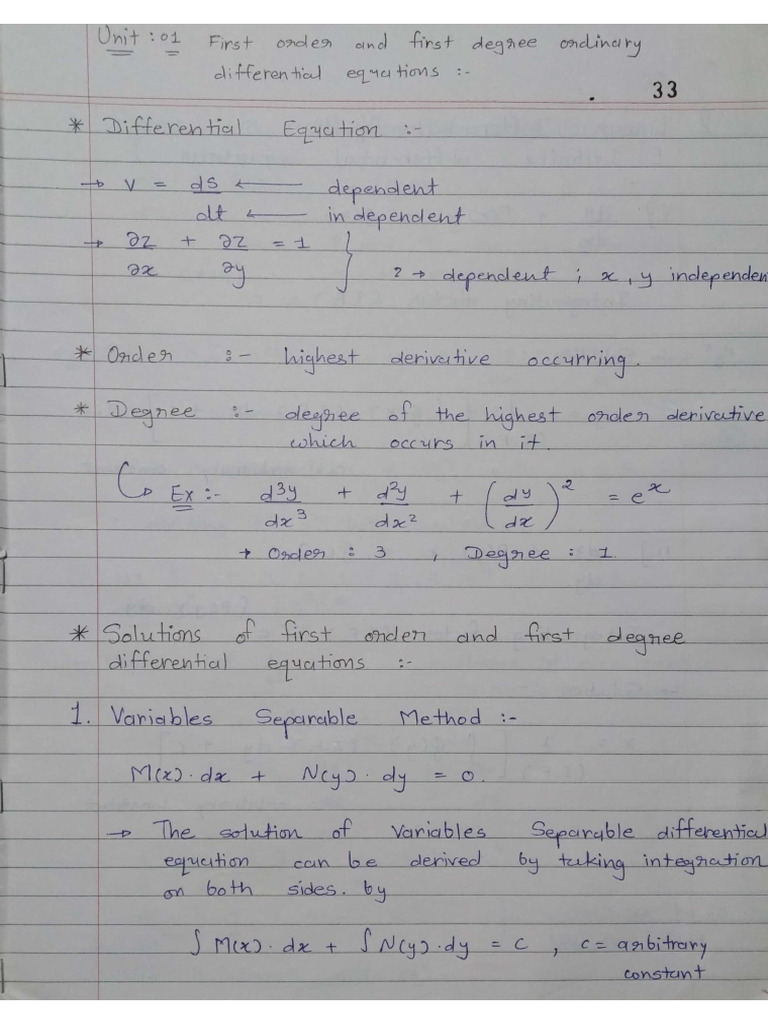 Unit : 01 First order and first degree ordinary
differential equations :-
33
* Differential Equation :-
→ V = ds/dt ← dependent
← independent
→ ∂z/∂x + ∂z/∂y = 1 } z → dependent ; x, y independen
* Order :- highest derivative occurring.
* Degree :- degree of the highest order derivative
which occurs in it.
↳ Ex :- d³y/dx³ + d²y/dx² + (dy/dx)² = eˣ
→ Order : 3 , Degree : 1
* Solutions of first order and first degree
differential equations :-
1. Variables Separable Method :-
M(x)·dx + N(y)·dy = 0.
→ The solution of Variables Separable differential
equation can be derived by taking integration
on both sides. by
∫ M(x)·dx + ∫ N(y)·dy = c , c = arbitrary
constant